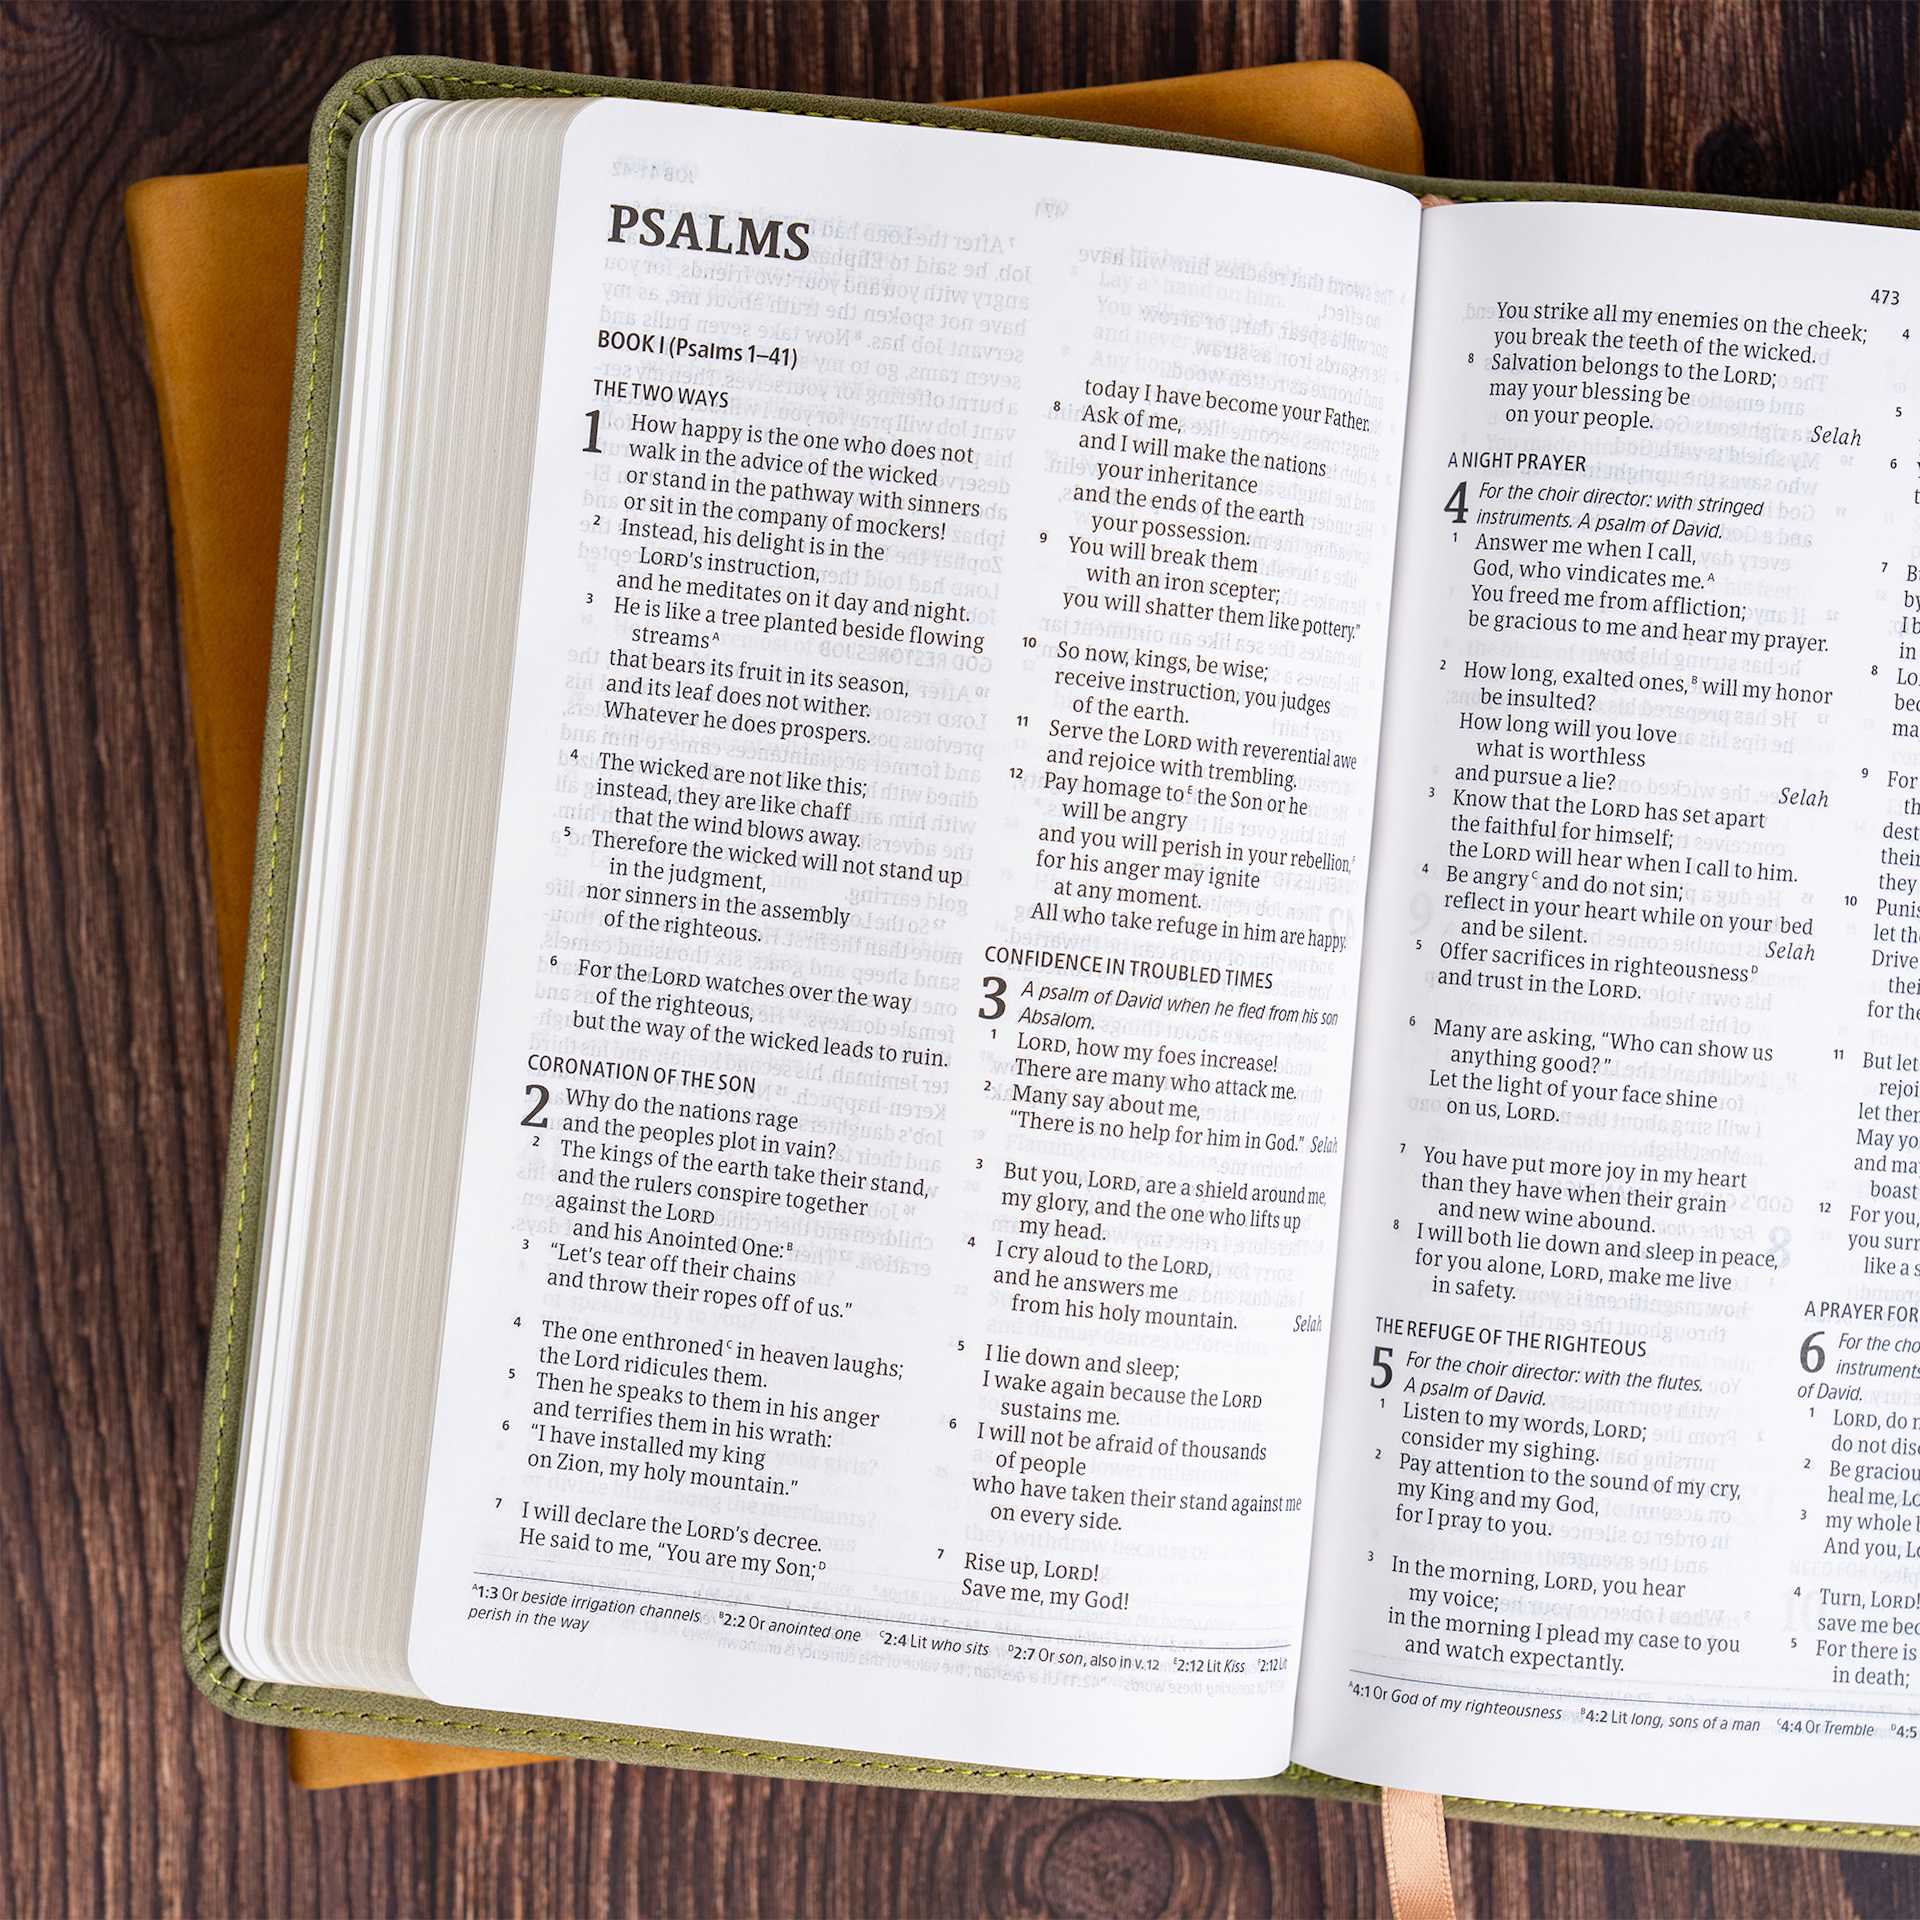 PSALMS
BOOK I (Psalms 1–41)
THE TWO WAYS
1 How happy is the one who does not
walk in the advice of the wicked
or stand in the pathway with sinners
or sit in the company of mockers!
2 Instead, his delight is in the
LORD's instruction,
and he meditates on it day and night.
3 He is like a tree planted beside flowing
streams A
that bears its fruit in its season,
and its leaf does not wither.
Whatever he does prospers.
4 The wicked are not like this;
instead, they are like chaff
that the wind blows away.
5 Therefore the wicked will not stand up
in the judgment,
nor sinners in the assembly
of the righteous.
6 For the LORD watches over the way
of the righteous,
but the way of the wicked leads to ruin.
CORONATION OF THE SON
2 Why do the nations rage
and the peoples plot in vain?
2 The kings of the earth take their stand,
and the rulers conspire together
against the LORD
and his Anointed One: B
3 “Let's tear off their chains
and throw their ropes off of us.”
4 The one enthroned C in heaven laughs;
the Lord ridicules them.
5 Then he speaks to them in his anger
and terrifies them in his wrath:
6 “I have installed my king
on Zion, my holy mountain.”
7 I will declare the LORD's decree.
He said to me, “You are my Son; D
today I have become your Father.
8 Ask of me,
and I will make the nations
your inheritance
and the ends of the earth
your possession.
9 You will break them
with an iron scepter;
you will shatter them like pottery.”
10 So now, kings, be wise;
receive instruction, you judges
of the earth.
11 Serve the LORD with reverential awe
and rejoice with trembling.
12 Pay homage to E the Son or he
will be angry
and you will perish in your rebellion, F
for his anger may ignite
at any moment.
All who take refuge in him are happy.
CONFIDENCE IN TROUBLED TIMES
3 A psalm of David when he fled from his son
Absalom.
1 LORD, how my foes increase!
There are many who attack me.
2 Many say about me,
“There is no help for him in God.” Selah
3 But you, LORD, are a shield around me,
my glory, and the one who lifts up
my head.
4 I cry aloud to the LORD,
and he answers me
from his holy mountain. Selah
5 I lie down and sleep;
I wake again because the LORD
sustains me.
6 I will not be afraid of thousands
of people
who have taken their stand against me
on every side.
7 Rise up, LORD!
Save me, my God!
A 1:3 Or beside irrigation channels B 2:2 Or anointed one C 2:4 Lit who sits D 2:7 Or son, also in v. 12 E 2:12 Lit Kiss F 2:12 Lit
perish in the way
473
You strike all my enemies on the cheek;
you break the teeth of the wicked.
8 Salvation belongs to the LORD;
may your blessing be
on your people. Selah
A NIGHT PRAYER
4 For the choir director: with stringed
instruments. A psalm of David.
1 Answer me when I call,
God, who vindicates me. A
You freed me from affliction;
be gracious to me and hear my prayer.
2 How long, exalted ones, B will my honor
be insulted?
How long will you love
what is worthless
and pursue a lie? Selah
3 Know that the LORD has set apart
the faithful for himself;
the LORD will hear when I call to him.
4 Be angry C and do not sin;
reflect in your heart while on your bed
and be silent. Selah
5 Offer sacrifices in righteousness D
and trust in the LORD.
6 Many are asking, “Who can show us
anything good?”
Let the light of your face shine
on us, LORD.
7 You have put more joy in my heart
than they have when their grain
and new wine abound.
8 I will both lie down and sleep in peace,
for you alone, LORD, make me live
in safety.
THE REFUGE OF THE RIGHTEOUS
5 For the choir director: with the flutes.
A psalm of David.
1 Listen to my words, LORD;
consider my sighing.
2 Pay attention to the sound of my cry,
my King and my God,
for I pray to you.
3 In the morning, LORD, you hear
my voice;
in the morning I plead my case to you
and watch expectantly.
4
5
6
7
by
in
8
9 For
10
let
Drive
for the
11 But let
let
May
and
boast
12 For you,
you
like a
A PRAYER FOR
6 For the
of David.
1 LORD, do
do not
2 Be
heal me,
3 my whole
And you,
4 Turn, LORD!
save me
5 For there is
in death;
A 4:1 Or God of my righteousness B 4:2 Lit long, sons of a man C 4:4 Or Tremble D 4:5